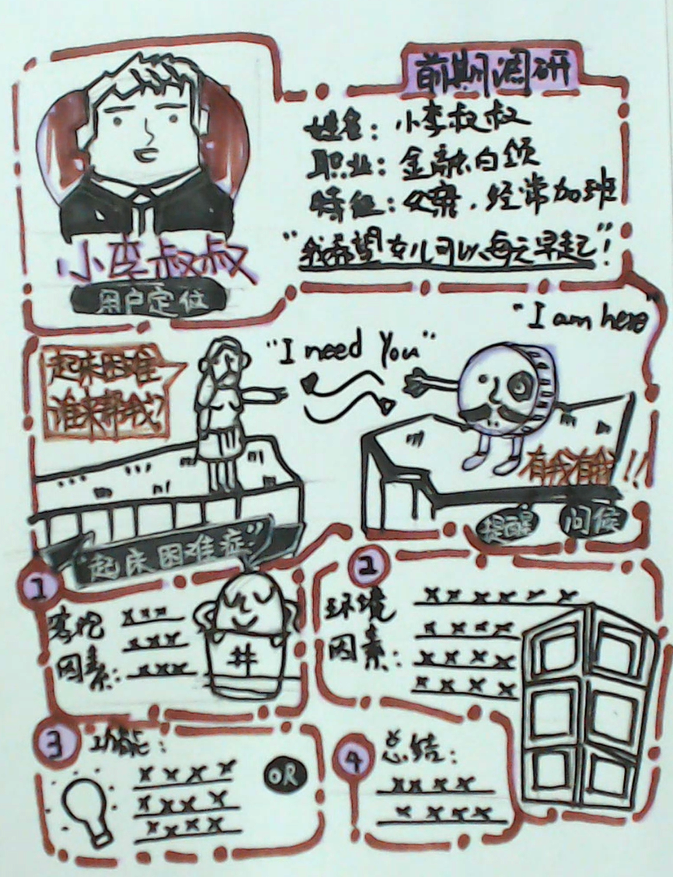 前期调研
姓名：小李叔叔
职业：金融白领
特征：父亲，经常加班
"我希望女儿可以每天早起"！
小李叔叔
用户定位
"I am here"
起床困难
谁来帮我？
"I need You"
有我有我!!
提醒 问候
"起床困难症"
1
客观 xxx
xxx
因素：xxx
2
环境 xxxxxx
xxxx
因素：xxxx
xxxx
3
功能：
xxxx
xxxx
xxxx
OR
4
总结：
xxxx
xxxx